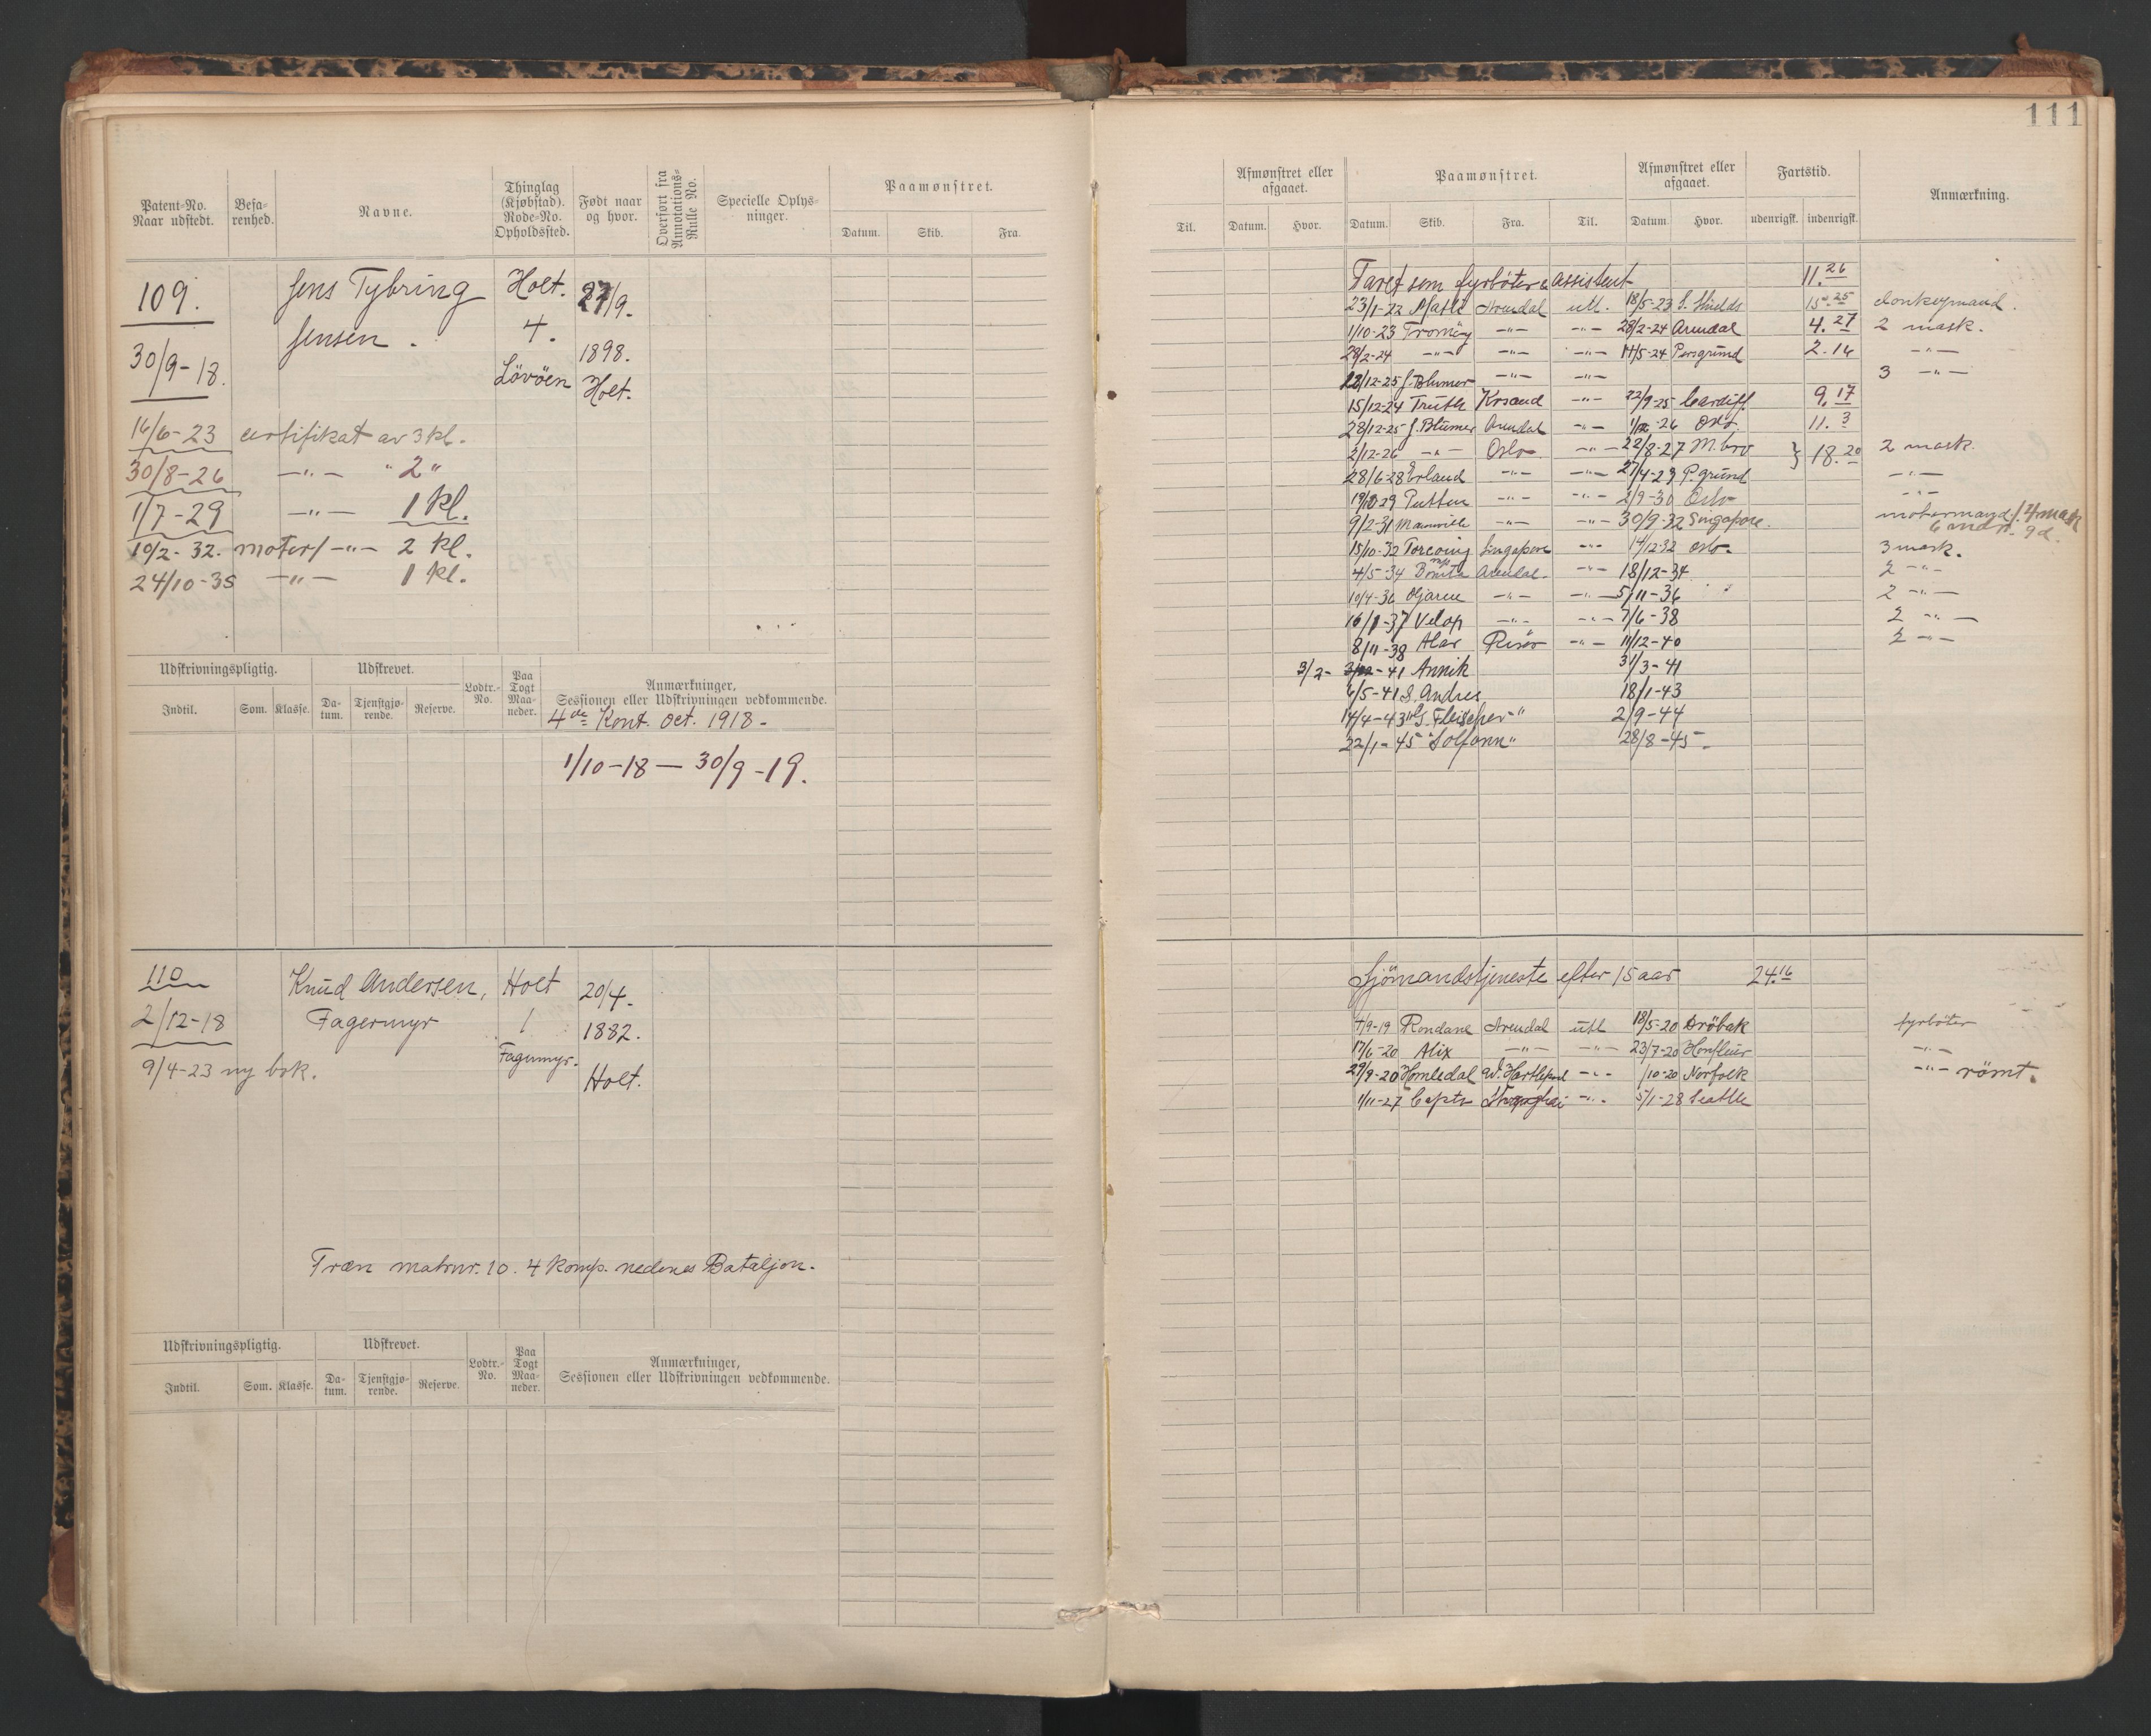 111
Patent-No.
Naar udstedt.
Befa-
renhed.
Navne.
Thinglag
(Kjøbstad).
Rode-No.
Opholdssted.
Født naar
og hvor.
Overført fra
Annotations-
Rulle No.
Specielle Oplys-
ninger.
Paamønstret.
Datum. Skib. Fra.
109.
30/9-18.
Jens Tybring
Jensen.
Holt.
4.
Lövöen
27/9.
1898.
Holt.
16/6-23 certifikat av 3 kl.
30/8-26 -"- " 2 "
1/7-29 -"- 1 kl.
10/2-32. motor/ -"- 2 kl.
24/10-35 -"- 1 kl.
Udskrivningspligtig. Udskrevet. Lodtr.-
No.
Paa
Togt
Maa-
neder.
Anmærkninger,
Sessionen eller Udskrivningen vedkommende.
Indtil. Som. Klasse. Da-
tum.
Tjenstgjø-
rende.
Reserve.
4de Kont. Oct. 1918.
1/10-18 — 30/9-19.
110
2/12-18
Knud Andersen,
Fagermyr
Holt
1
Fagermyr.
20/4.
1882.
Holt.
9/4-23 ny bok.
Træn matrnr. 10. 4 komp. nedenes Bataljon.
Udskrivningspligtig. Udskrevet. Lodtr.-
No.
Paa
Togt
Maa-
neder.
Anmærkninger,
Sessionen eller Udskrivningen vedkommende.
Indtil. Som. Klasse. Da-
tum.
Tjenstgjø-
rende.
Reserve.
Afmønstret eller
afgaaet.
Paamønstret.
Afmønstret eller
afgaaet.
Fartstid.
Anmærkning.
Til. Datum. Hvor. Datum. Skib. Fra. Til. Datum. Hvor. udenrigsk. indenrigsk.
Faret som fyrböter & assistent 11.26
23/1-22 Arendal utl. 18/5-23 S. Shields 15.25 donkeymand.
1/10-23 Tromöy -"- -"- 28/2-24 Arendal 4.27 2 mask.
28/2-24 -"- -"- -"- 14/5-24 Porsgrund 2.16 -"-
28/12-25 J. Blumer -"- -"- 3 -"-
15/12-24 Truth Krsand -"- 22/9-25 Cardiff 9.17
28/12-25 J. Blumer Arendal -"- -26 Oslo. 11.3
2/12-26 -"- Oslo -"- 22/8-27 M.bro } 18.20 2 mask.
28/6-28 Erland -"- -"- 27/4-29 P.grund -"-
29 -"- -"- 2/9-30 Oslo -"-
9/2-31 -"- -"- 30/9-32 Singapore. motormand/. 4 mask
15/10-32 Singapore -"- 14/12-32 Oslo. 3 mask.
4/5-34 Arendal. -"- 18/12-34 2 -"-
10/4-36 Ojaren -"- -"- 5/11-36 2 -"-
-37 Velox -"- -"- 7/6-38 2 -"-
8/11-38 Alar Risör -"- 11/12-40 2 -"-
3/2- -41 Annik 31/3-41
6/5-41 S. Andres 18/1-43
14/4-43 "G. Fleischer" 2/9-44
22/1-45 "Solfonn" 28/8-45.
Sjömandstjeneste efter 15 aar 24.16
4/9-19 Rondane Arendal utl 18/5-20 Dröbak fyrböter
17/6-20 Alix -"- -"- 23/7-20 Honfleur -"-
29/9-20 Homledal W. Hartlepool -"- /10-20 Norfolk -"- römt.
1/11-27 Capto Shanghai -"- 5/1-28 Seattle